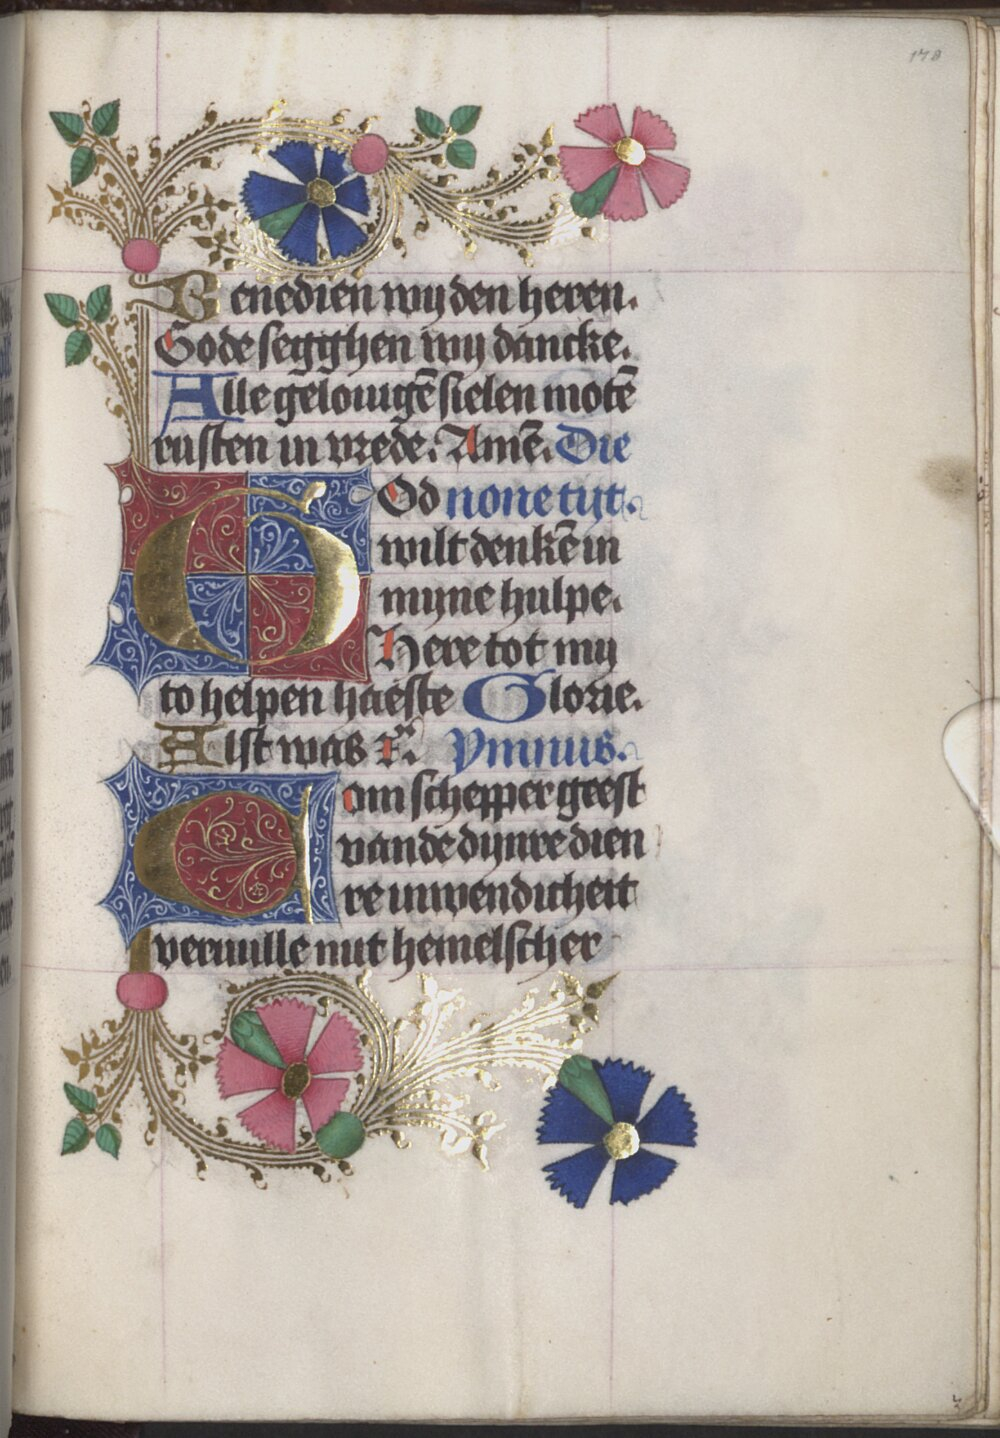 178
Benedien wy den heren.
Gode segghen wy dancke.
Alle gelouigē sielen motē
rusten in vrede. Amē. Die
God none tyt.
wilt denkē in
myne hulpe.
Here tot my
to helpen haeste Glorie.
Alst was I. Ymnus.
Com schepper geest
vande dynre dien
re inwendicheit
veruulle mit hemelscher